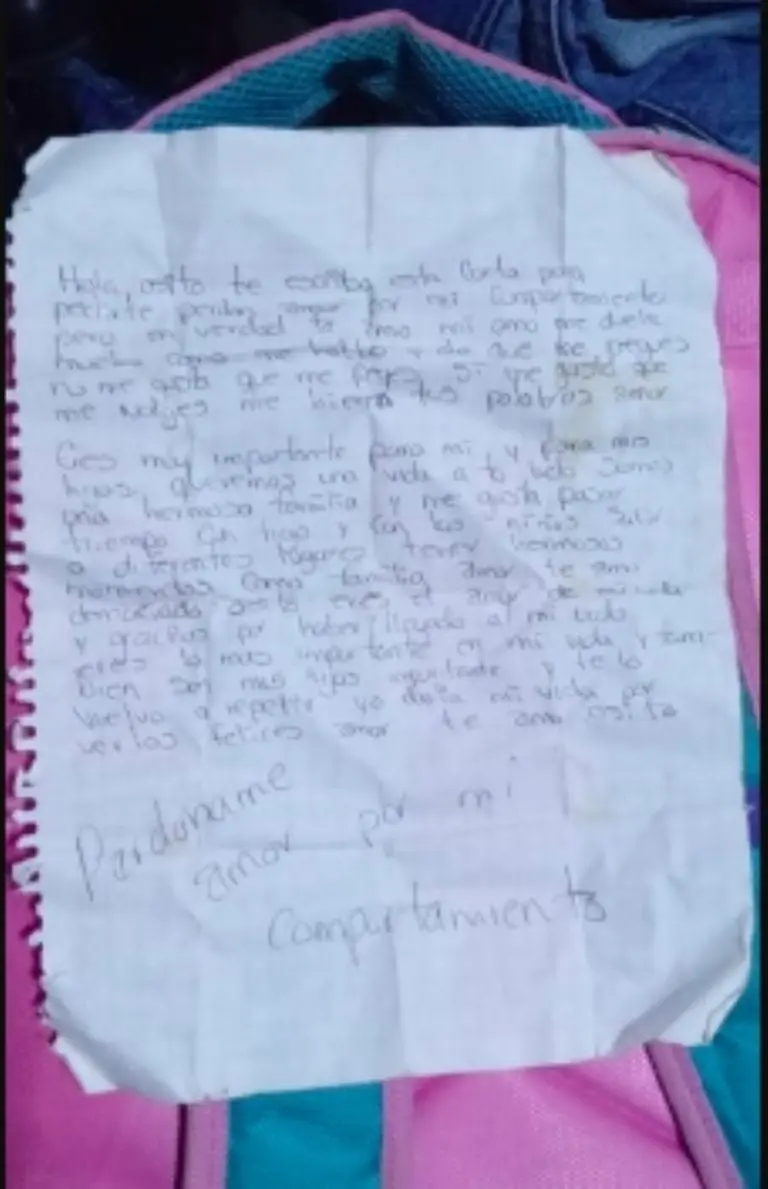 Hola osito te escribo esta Carta para
pedirte perdon amor por mi Compartamiento
pero en verdad te amo mi amo me duele
mucho como me hablas y de que me pegues
no me gusta que me pegues si me gusta que
me me hieren tus palabras amor
Eres muy importante para mi y para mis
hijos, queremos una vida a tu lado Somos
una hermosa familia y me gusta pasar
tiempo Con tigo y Con los niños Salir
a diferentes lugares tener hermosos
momentos Como familia amor te amo
demaciado osito eres el amor de mi vida
y gracias por haber llegado a mi vida
eres lo mas importante en mi vida y tam-
bien son mis hijos importante y te lo
vuelvo a repetir yo daria mi vida por
verlos felices amor te amo osito
Perdoname
amor por mi
Compartamiento